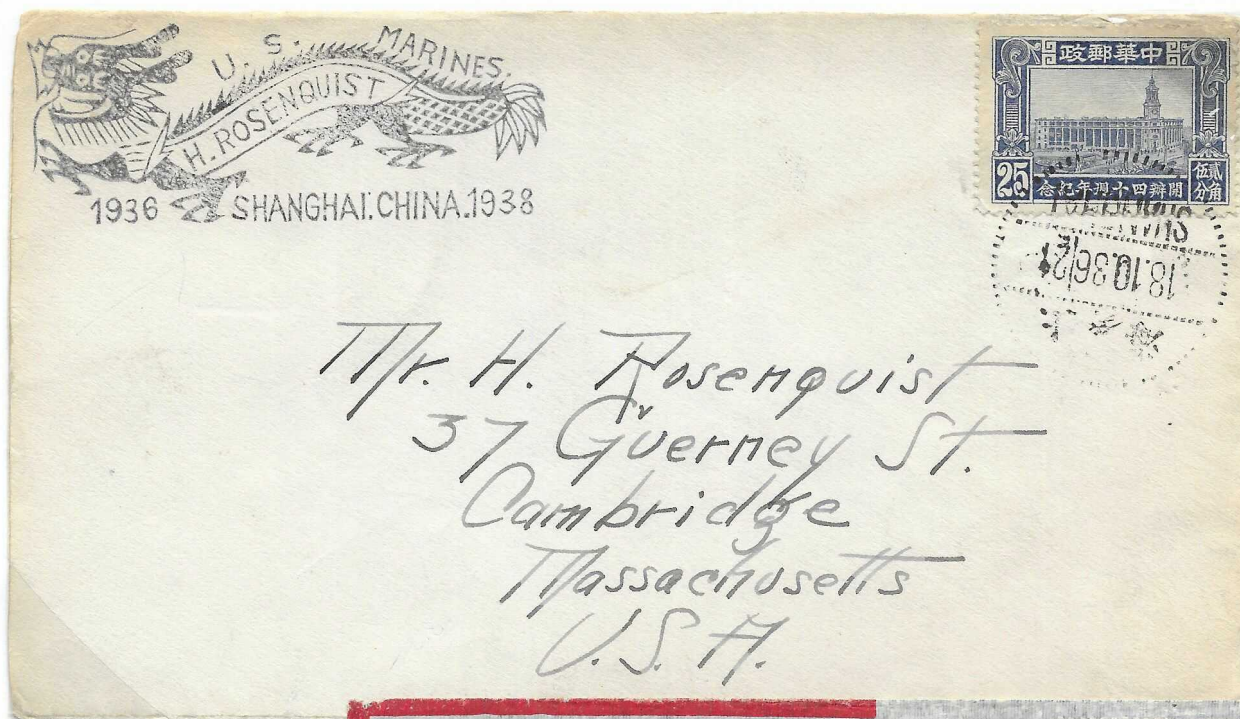 U. S. MARINES.
H. ROSENQUIST
1936 SHANGHAI. CHINA. 1938
中華郵政
25
開辦四十週年紀念
貳角伍分
SHANGHAI
18.10.36 21
上海
Mr. H. Rosenquist
37 Guerney St.
Cambridge
Massachusetts
U.S.A.